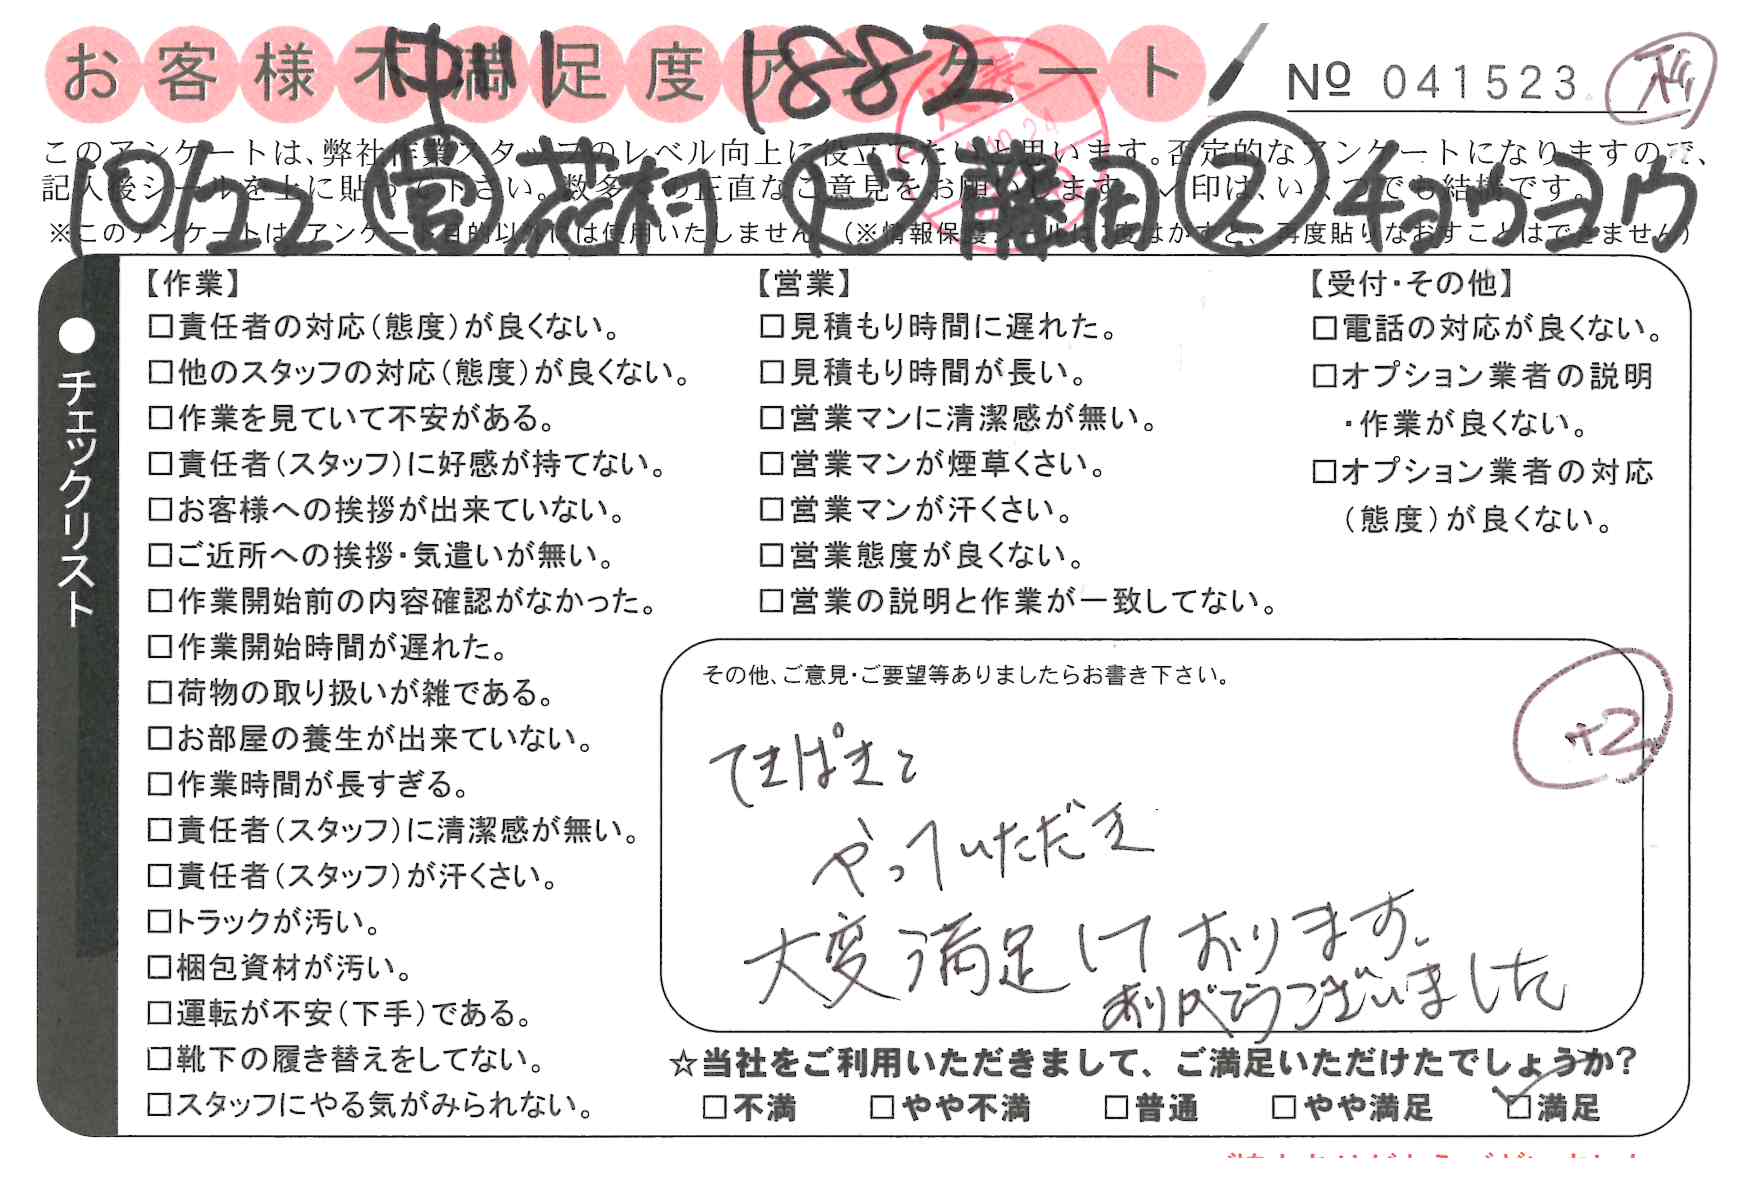 お客様不満足度アンケート
中川 1882
№ 041523
このアンケートは、弊社作業スタッフのレベル向上に役立てたいと思います。否定的なアンケートになりますので、
記入後シールを上に貼って下さい。数多くの正直なご意見をお願いします。✓印は、いくつでも結構です。
10/22 営 志村 ド 藤田 2 チョウヨウ
※このアンケートは、アンケート目的以外には使用いたしません。（※情報保護シールは1度はがすと、再度貼りなおすことはできません）
●チェックリスト
【作業】
□責任者の対応（態度）が良くない。
□他のスタッフの対応（態度）が良くない。
□作業を見ていて不安がある。
□責任者（スタッフ）に好感が持てない。
□お客様への挨拶が出来ていない。
□ご近所への挨拶・気遣いが無い。
□作業開始前の内容確認がなかった。
□作業開始時間が遅れた。
□荷物の取り扱いが雑である。
□お部屋の養生が出来ていない。
□作業時間が長すぎる。
□責任者（スタッフ）に清潔感が無い。
□責任者（スタッフ）が汗くさい。
□トラックが汚い。
□梱包資材が汚い。
□運転が不安（下手）である。
□靴下の履き替えをしてない。
□スタッフにやる気がみられない。
【営業】
□見積もり時間に遅れた。
□見積もり時間が長い。
□営業マンに清潔感が無い。
□営業マンが煙草くさい。
□営業マンが汗くさい。
□営業態度が良くない。
□営業の説明と作業が一致してない。
【受付・その他】
□電話の対応が良くない。
□オプション業者の説明
・作業が良くない。
□オプション業者の対応
（態度）が良くない。
その他、ご意見・ご要望等ありましたらお書き下さい。
+2
てきぱきと
やっていただき
大変満足しております。
ありがとうございました
☆当社をご利用いただきまして、ご満足いただけたでしょうか？
□不満 □やや不満 □普通 □やや満足 ☑満足